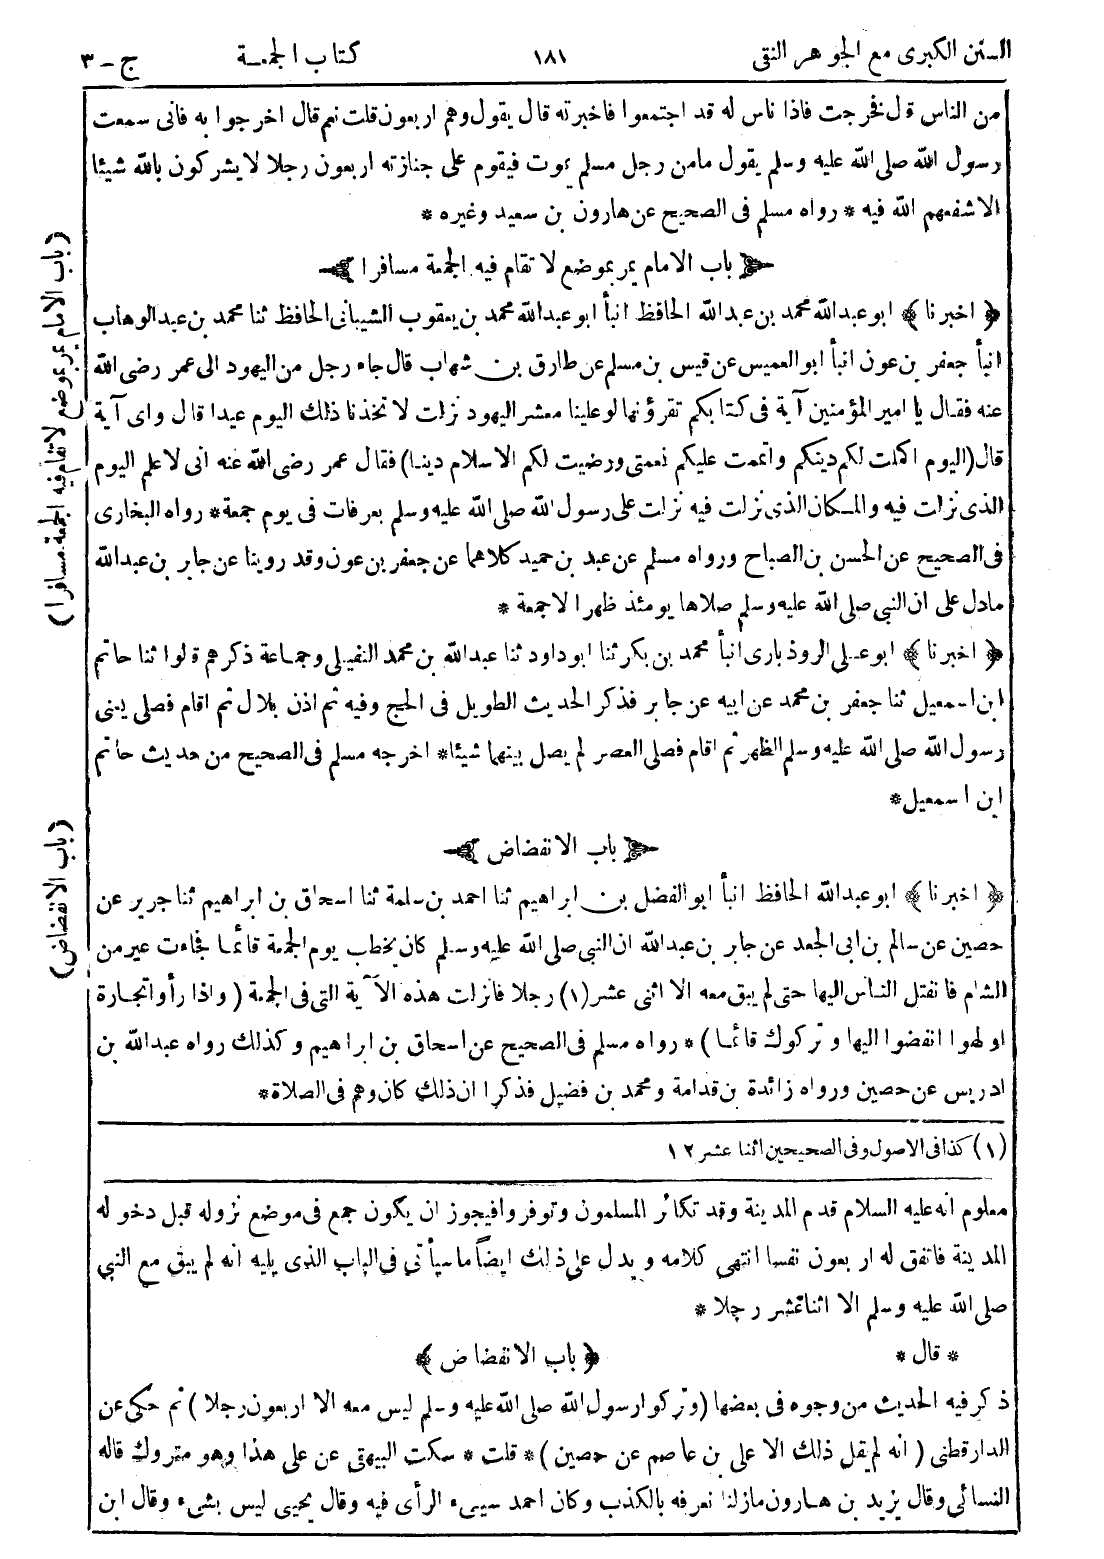 السنن الكبرى مع الجوهر النقى ١٨١ كتاب الجمعة ج-٣
من الناس قال فخرجت فاذا ناس له قد اجتمعوا فاخبرته قال يقول وهم اربعون قلت نعم قال اخرجوا به فانى سمعت
رسول الله صلى الله عليه وسلم يقول مامن رجل مسلم يموت فيقوم على جنازته اربعون رجلا لا يشركون بالله شيئا
الا شفعهم الله فيه * رواه مسلم فى الصحيح عن هارون بن سعيد وغيره *
باب الامام يمر بموضع لا تقام فيه الجمعة مسافرا
﴿ اخبرنا ﴾ ابو عبدالله محمد بن عبدالله الحافظ انبأ ابو عبدالله محمد بن يعقوب الشيبانى الحافظ ثنا محمد بن عبدالوهاب
انبأ جعفر بن عون انبأ ابو العميس عن قيس بن مسلم عن طارق بن شهاب قال جاء رجل من اليهود الى عمر رضى الله
عنه فقال يا امير المؤمنين آية فى كتابكم تقرؤنها لو علينا معشر اليهود نزلت لاتخذنا ذلك اليوم عيدا قال واى آية
قال (اليوم اكملت لكم دينكم واتممت عليكم نعمتى ورضيت لكم الاسلام دينا) فقال عمر رضى الله عنه انى لا علم اليوم
الذى نزلت فيه والمكان الذى نزلت فيه نزلت على رسول الله صلى الله عليه وسلم بعرفات فى يوم جمعة * رواه البخارى
فى الصحيح عن الحسن بن الصباح ورواه مسلم عن عبد بن حميد كلاهما عن جعفر بن عون وقد روينا عن جابر بن عبدالله
مادل على ان النبى صلى الله عليه وسلم صلاها يومئذ ظهرا لا جمعة *
﴿ اخبرنا ﴾ ابو على الروذبارى انبأ محمد بن بكر ثنا ابو داود ثنا عبدالله بن محمد النفيلى وجماعة ذكرهم قالوا ثنا حاتم
ابن اسمعيل ثنا جعفر بن محمد عن ابيه عن جابر فذكر الحديث الطويل فى الحج وفيه ثم اذن بلال ثم اقام فصلى يعنى
رسول الله صلى الله عليه وسلم الظهر ثم اقام فصلى العصر لم يصل بينهما شيئا * اخرجه مسلم فى الصحيح من حديث حاتم
ابن اسمعيل *
باب الانفضاض
﴿ اخبرنا ﴾ ابو عبدالله الحافظ انبأ ابو الفضل بن ابراهيم ثنا احمد بن سلمة ثنا اسحاق بن ابراهيم ثنا جرير عن
حصين عن سالم بن ابى الجعد عن جابر بن عبدالله ان النبى صلى الله عليه وسلم كان يخطب يوم الجمعة قائما فجاءت عير من
الشام فانفتل الناس اليها حتى لم يبق معه الا اثنى عشر (١) رجلا فانزلت هذه الآية التى فى الجمعة ( واذا رأوا تجارة
او لهوا انفضوا اليها وتركوك قائما ) * رواه مسلم فى الصحيح عن اسحاق بن ابراهيم وكذلك رواه عبدالله بن
ادريس عن حصين ورواه زائدة بن قدامة ومحمد بن فضيل فذكرا ان ذلك كان وهم فى الصلاة *
(١) كذا فى الاصول وفى الصحيحين اثنا عشر ١٢
معلوم انه عليه السلام قدم المدينة وقد تكاثر المسلمون وتوفروا فيجوز ان يكون جمع فى موضع نزوله قبل دخوله
المدينة فاتفق له اربعون نفسا انتهى كلامه ويدل على ذلك ايضاً ما سيأتى فى الباب الذى يليه انه لم يبق مع النبي
صلى الله عليه وسلم الا اثنا عشر رجلا *
* قال * ﴿ باب الانفضاض ﴾
ذكر فيه الحديث من وجوه فى بعضها (وتركوا رسول الله صلى الله عليه وسلم ليس معه الا اربعون رجلا ) ثم حكى عن
الدارقطنى ( انه لم يقل ذلك الا على بن عاصم عن حصين ) * قلت * سكت البيهقى عن على هذا وهو متروك قاله
النسائى وقال يزيد بن هارون مازلنا نعرفه بالكذب وكان احمد سيىء الرأى فيه وقال يحيى ليس بشىء وقال ابن
(باب الامام يمر بموضع لا تقام فيه الجمعة مسافرا)
(باب الانفضاض)